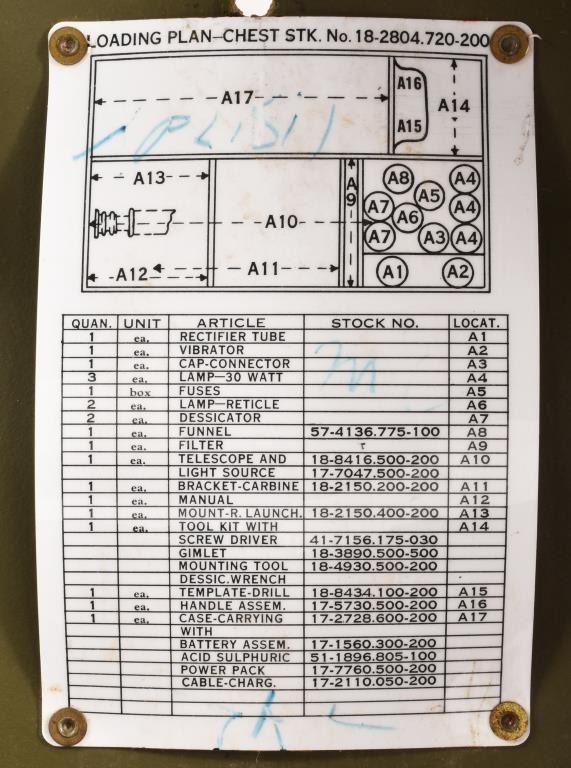 LOADING PLAN—CHEST STK. No. 18-2804.720-200
A17 A16 A14
A15
A13 A9 A8 A5 A4
A10 A7 A6 A4
A7 A3 A4
A12 A11 A1 A2
QUAN. UNIT ARTICLE STOCK NO. LOCAT.
1 ea. RECTIFIER TUBE A1
1 ea. VIBRATOR A2
1 ea. CAP-CONNECTOR A3
3 ea. LAMP—30 WATT A4
1 box FUSES A5
2 ea. LAMP—RETICLE A6
2 ea. DESSICATOR A7
1 ea. FUNNEL 57-4136.775-100 A8
1 ea. FILTER A9
1 ea. TELESCOPE AND 18-8416.500-200 A10
LIGHT SOURCE 17-7047.500-200
1 ea. BRACKET-CARBINE 18-2150.200-200 A11
1 ea. MANUAL A12
1 ea. MOUNT-R. LAUNCH. 18-2150.400-200 A13
1 ea. TOOL KIT WITH A14
SCREW DRIVER 41-7156.175-030
GIMLET 18-3890.500-500
MOUNTING TOOL 18-4930.500-200
DESSIC.WRENCH
1 ea. TEMPLATE-DRILL 18-8434.100-200 A15
1 ea. HANDLE ASSEM. 17-5730.500-200 A16
1 ea. CASE-CARRYING 17-2728.600-200 A17
WITH
BATTERY ASSEM. 17-1560.300-200
ACID SULPHURIC 51-1896.805-100
POWER PACK 17-7760.500-200
CABLE-CHARG. 17-2110.050-200